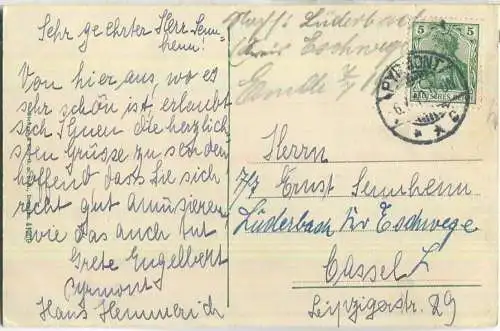 Sehr geehrter Herr Senn-
heim!
Von hier aus, wo es
sehr schön ist, erlaubt
sich Ihnen die herzlich
sten Grüsse zu senden
hoffend dass Sie sich
recht gut amüsieren
wie das auch tut
Grete Engelbert
Pyrmont
Hans Hemmerich
Lüderbach
Kreis Eschwege
5 5
DEUTSCHES REICH
PYRMONT
Herrn
Ernst Sennheim
Lüderbach Kr Eschwege
Cassel
Leipzigerstr. 29